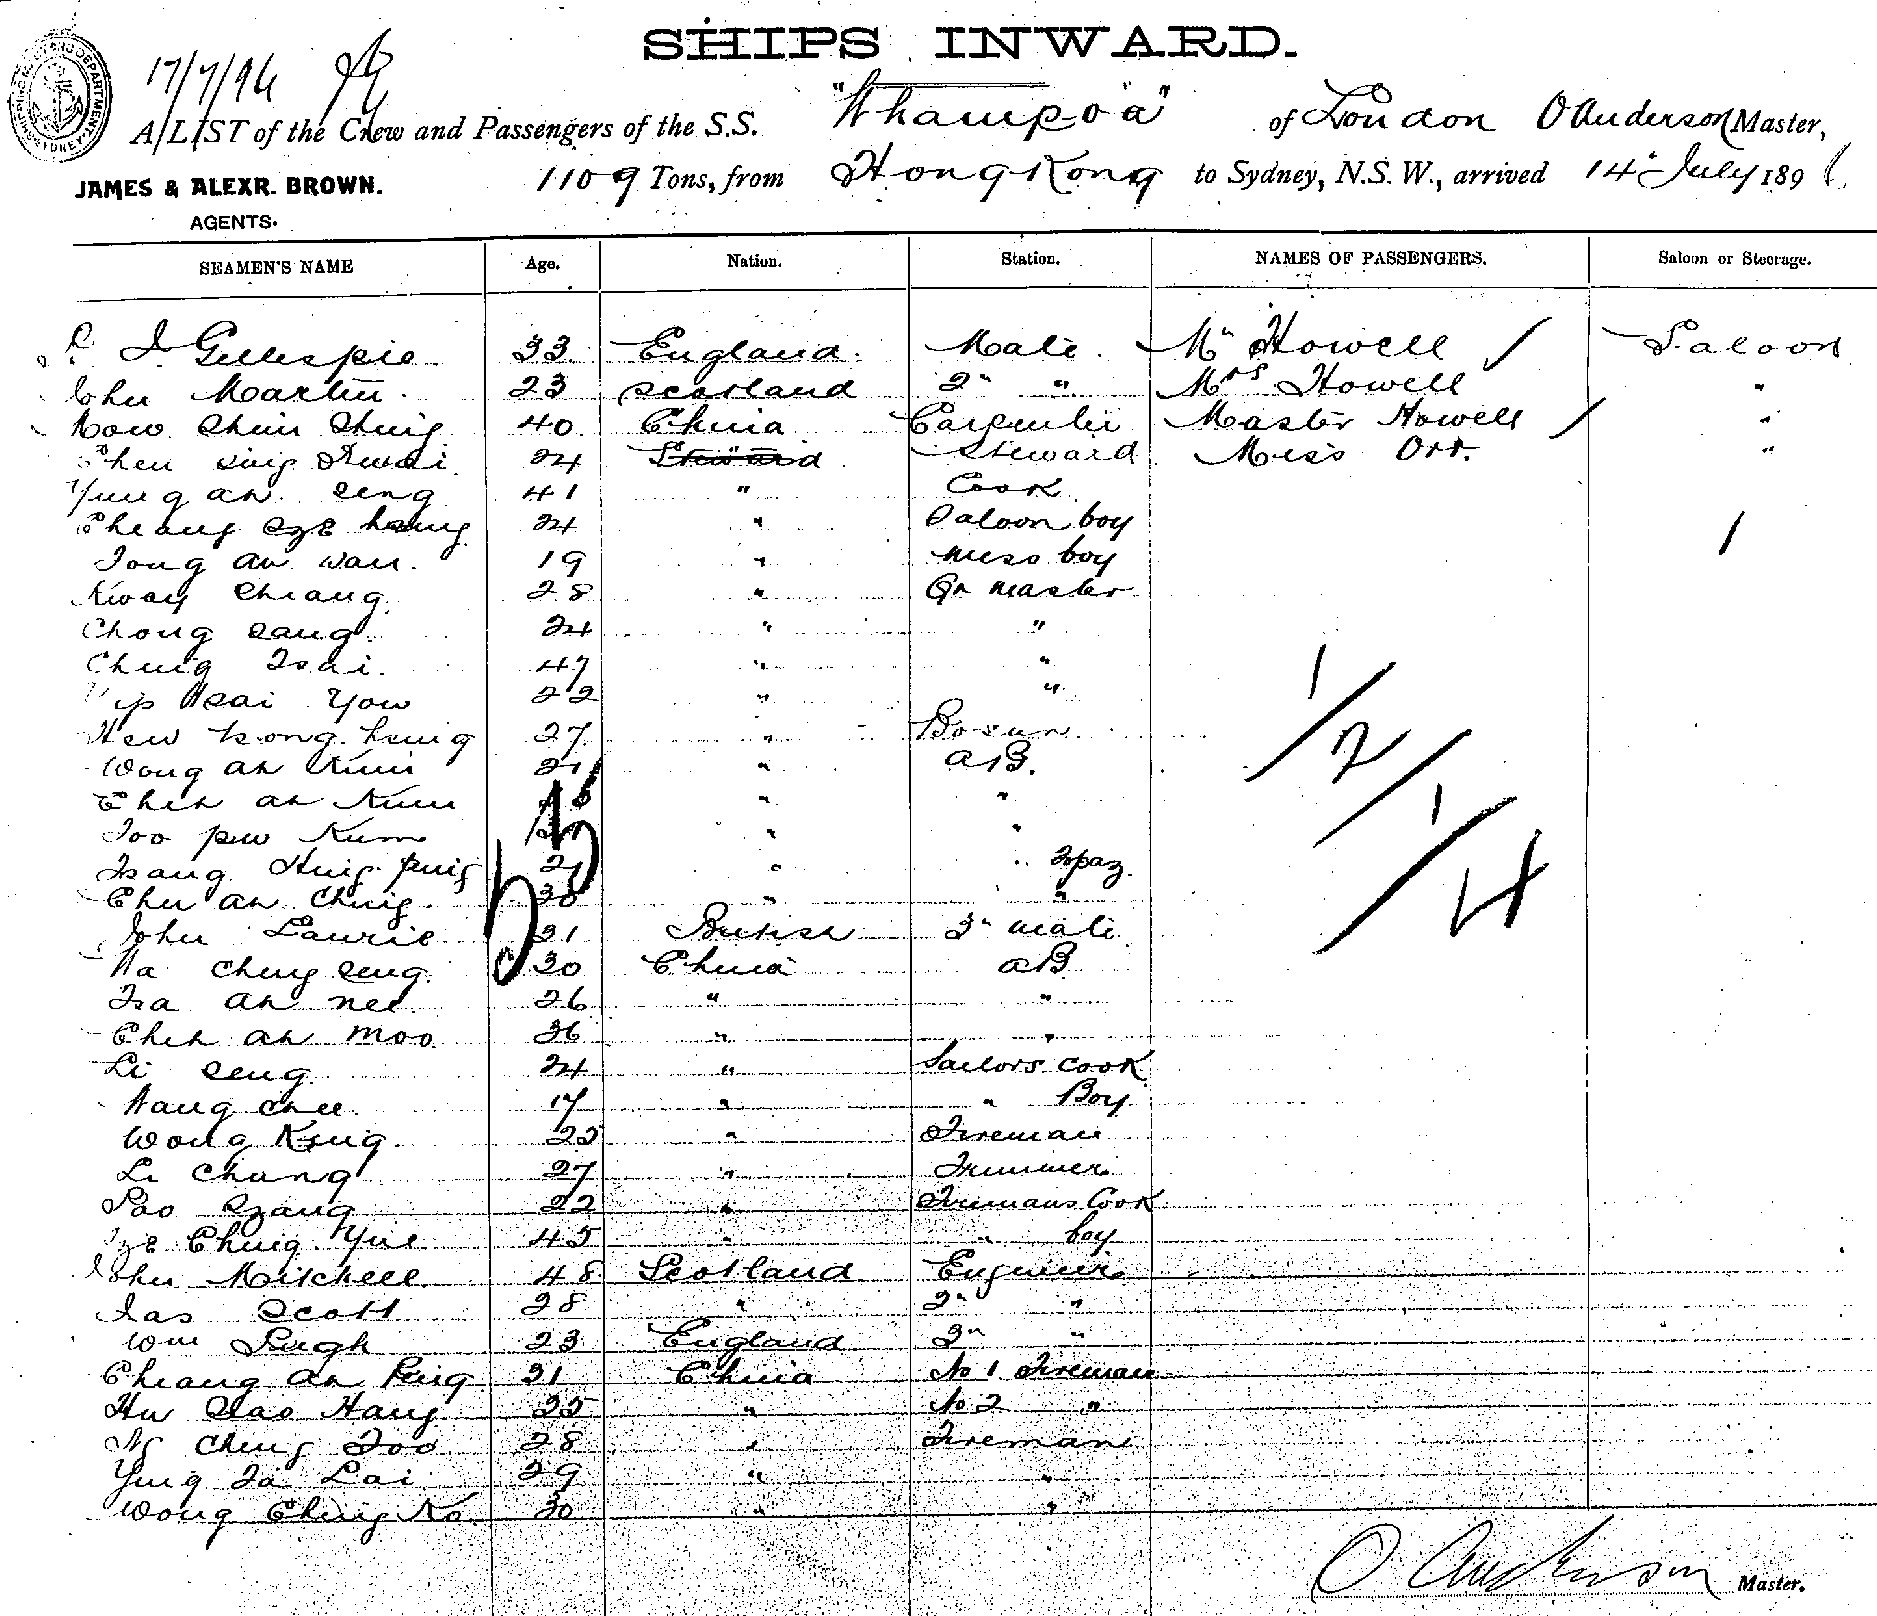 SHIPS INWARD.
17/7/96
A LIST of the Crew and Passengers of the S.S. "Whampoa" of London O Anderson Master,
JAMES & ALEXR. BROWN. 1109 Tons, from Hong Kong to Sydney, N.S.W., arrived 14" July 1896
AGENTS.
SEAMEN'S NAME Age. Nation. Station. NAMES OF PASSENGERS. Saloon or Steerage.
Gillespie 33 England Mate Mr Howell Saloon
John Martin 23 Scotland 2" " Mrs Howell "
Chin Ching 40 China Carpenter Master Howell "
Chen 24 Steward Steward Miss Orr. "
Yung ah seng 41 " Cook
Cheang sze 24 " Saloon boy
Tong ah wan 19 " Mess boy
Kway Chiang 28 " Qr master
Chong sang 24 " "
Ching Tsai 47 " "
Yip You 22 " "
hsing 27 " Bosun
Wong ah 21 " A.B.
Chen ah Kum " "
Too pew Kum " "
Tsang 21 " " Topaz
Chu ah Ching 38 " "
John Lawrie 31 British 3" mate
Ching seng 30 China AB
Tsa ah nee 26 " "
Chen ah moo 36 " "
Li seng 24 " Sailors cook
Wang chee 17 " " Boy
Wong King 25 " Fireman
Li Chang 27 " Trimmer
Pao Szang 22 " Firemans Cook
Sze Ching Yue 45 " " boy
John Mitchell 48 Scotland Engineer
Jas Scott 28 " 2" "
Wm Pugh 23 England 3" "
Chiang ah Ping 31 China No 1 Fireman
Hu Hang 25 " No 2 "
Ching Foo 28 " Fireman
Ying Ta Lai 29 " "
Wong Ching Ko 30 " "
1/2/1/4
O Anderson Master.